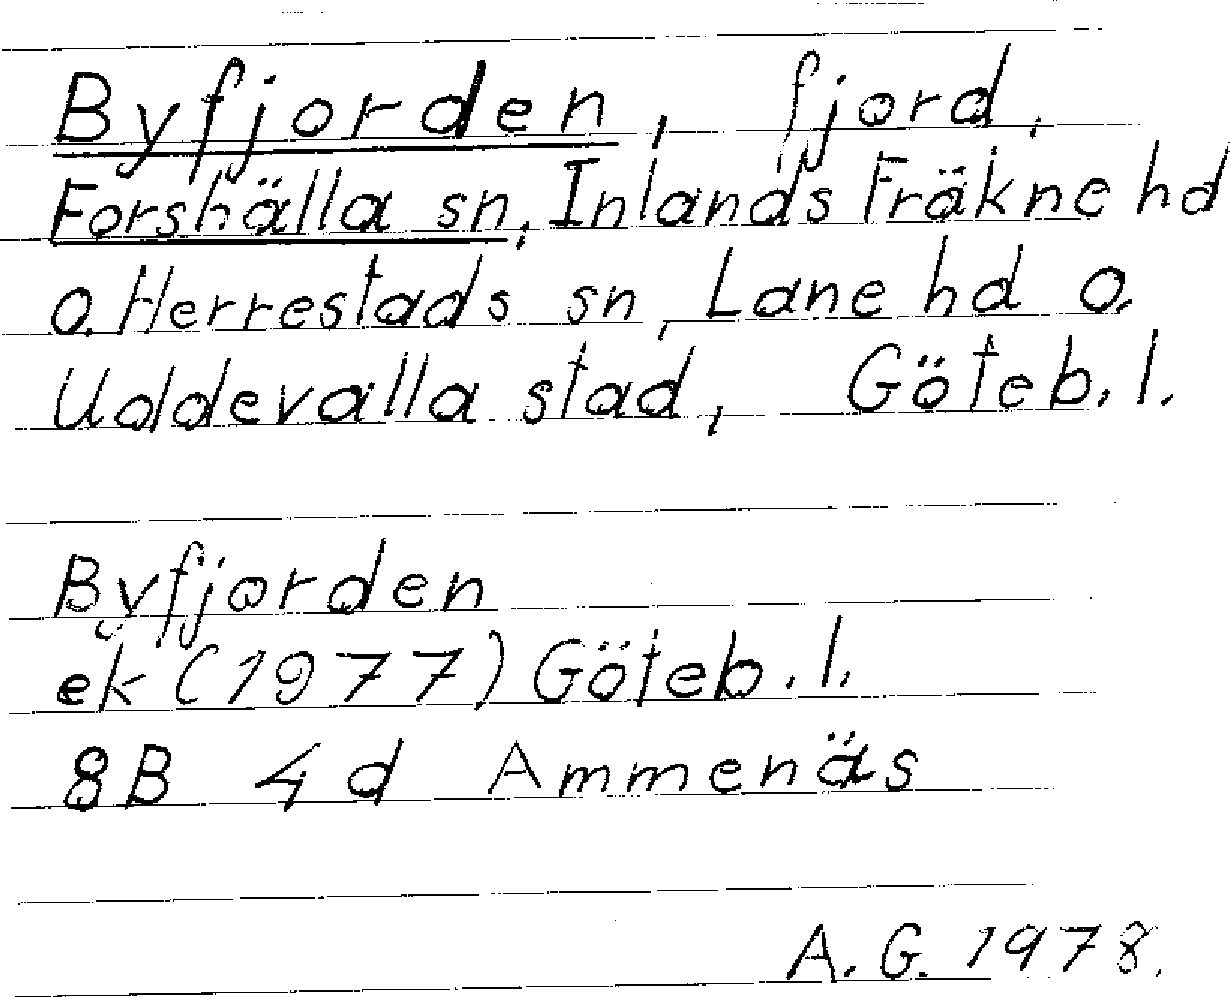 Byfjorden, fjord,
Forshälla sn, Inlands Fräkne hd
o. Herrestads sn, Lane hd o.
Uddevalla stad, Göteb. l.
Byfjorden
ek (1977) Göteb. l.
8B 4d Ammenäs
A. G. 1978.